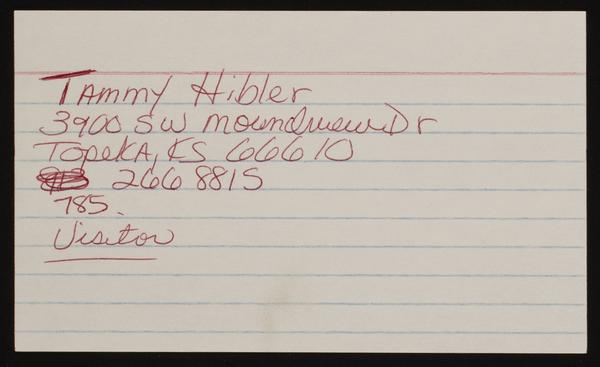 Tammy Hibler
3900 SW Moundview Dr
Topeka, KS 66610
266 8815
785.
Visitor